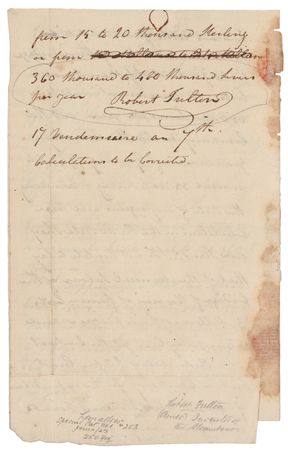 from 15 to 20 thousand Sterling
or from
360 thousand to 480 thousand Livres
per year Robert Fulton
17 Vendemiaire an 7th.
Calculations to be Corrected
Robert Fulton
Inventor of
the Steamboat